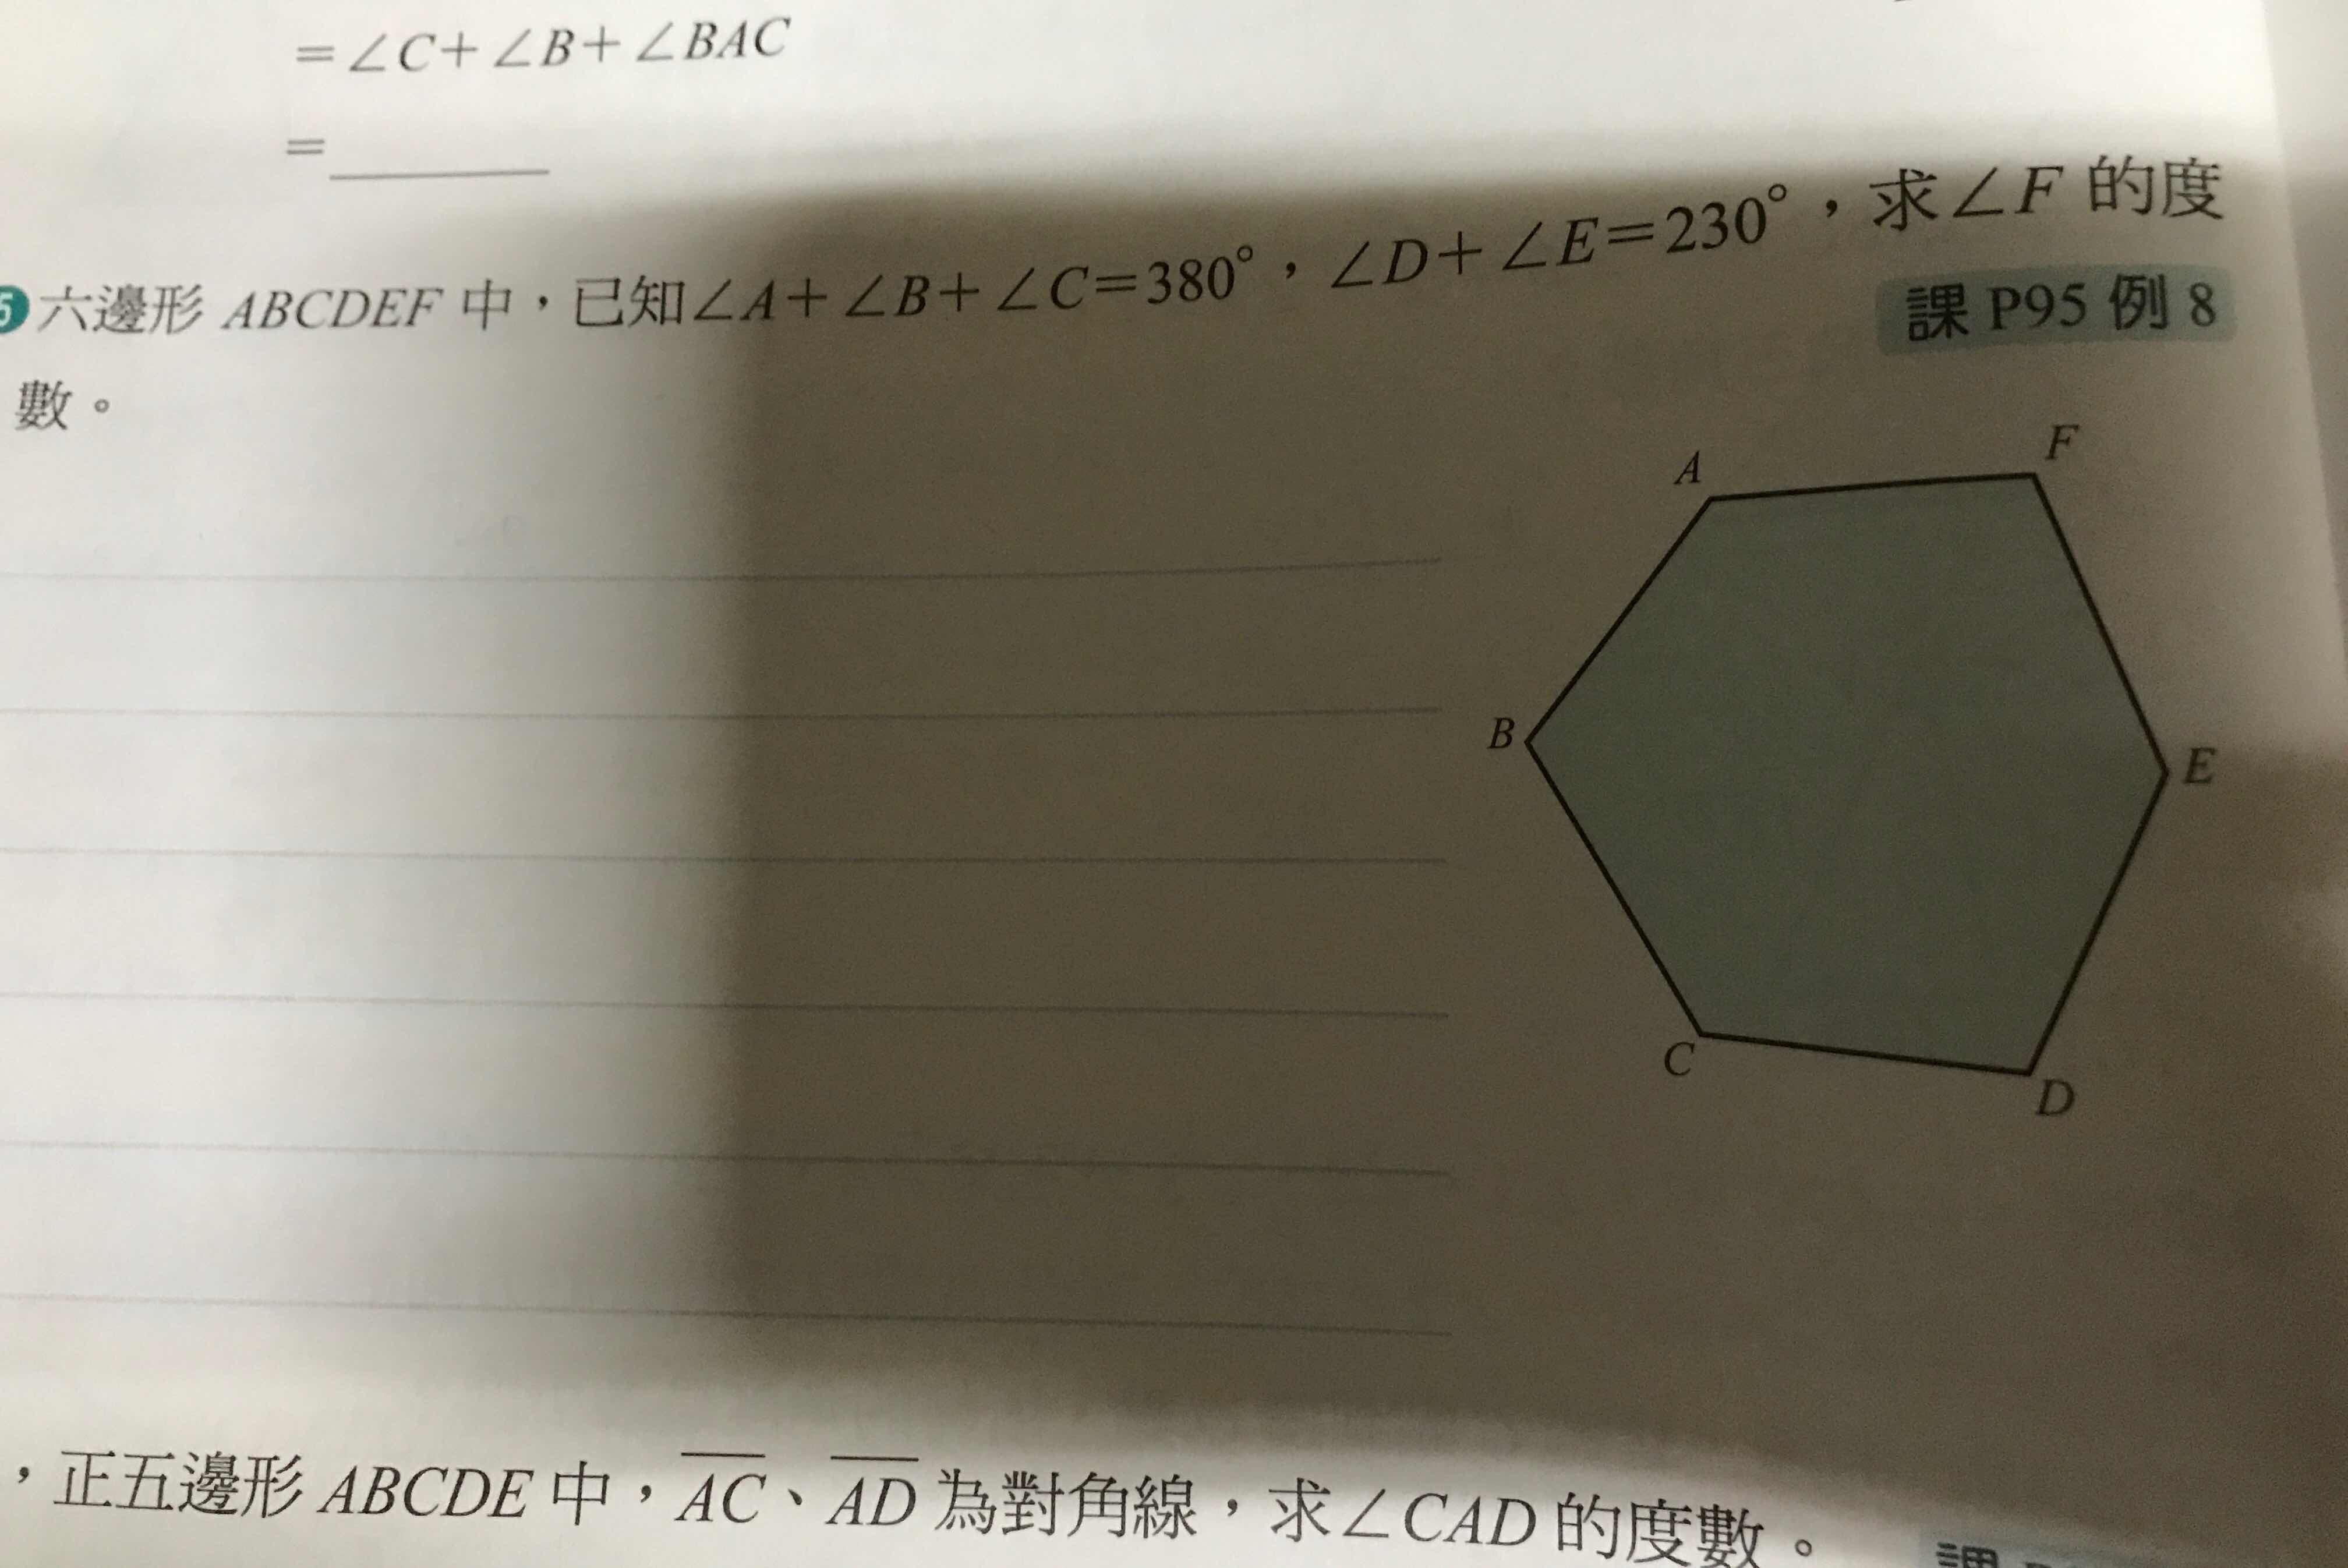 =∠C+∠B+∠BAC
=
5 六邊形 ABCDEF 中，已知∠A+∠B+∠C=380°，∠D+∠E=230°，求∠F 的度
數。
課 P95 例 8
A
F
B
E
C
D
，正五邊形 ABCDE 中，AC、AD 為對角線，求∠CAD 的度數。
課